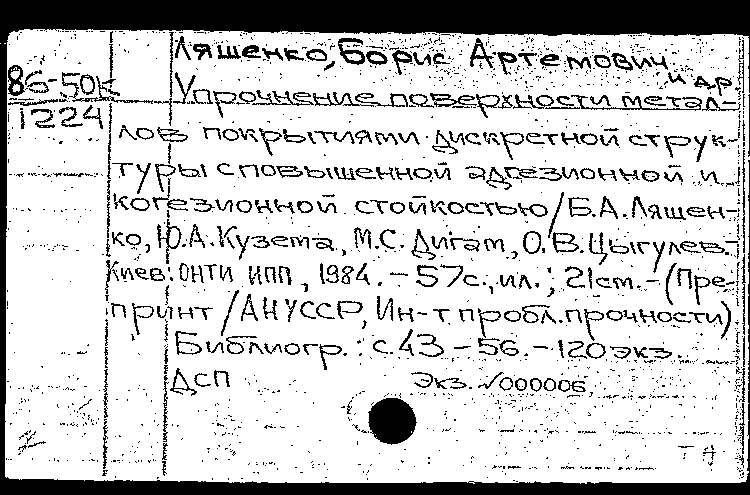 Ляшенко, Борис Артемович
и др.
86-50к
1224
Упрочнение поверхности метал-
лов покрытиями дискретной струк-
туры с повышенной адгезионной и
когезионной стойкостью/Б.А.Ляшен-
ко, Ю.А.Кузема, М.С.Дигам, О.В.Цыгулев.-
Киев: ОНТИ ИПП, 1984.-57с., ил.; 21см.-(Пре-
принт/АН УССР, Ин-т пробл.прочности)
Библиогр.: с.43-56.-120экз.
ДСП Экз. №000006